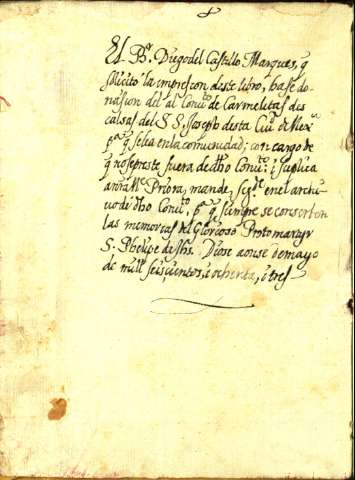 El Br. Diego del Castillo Marques, q
solicito la impresion deste libro, hase do-
nasion del al Convto. de Carmelitas des
calsas del S S. Joseph desta Ciud. de Mexco.
pa. q se lea en la comunidad; con cargo de
q no se preste fuera de dho Convto. i suplica
a nra Me. Priora, mande, se gde. en el archi
vo de dho Convto. pa. q siempre se conserven
las memorias del Glorioso Protomartyr
S. Phelipe de Jhs. Diose a onse de mayo
de mill seisçientos, i ochenta, i tres